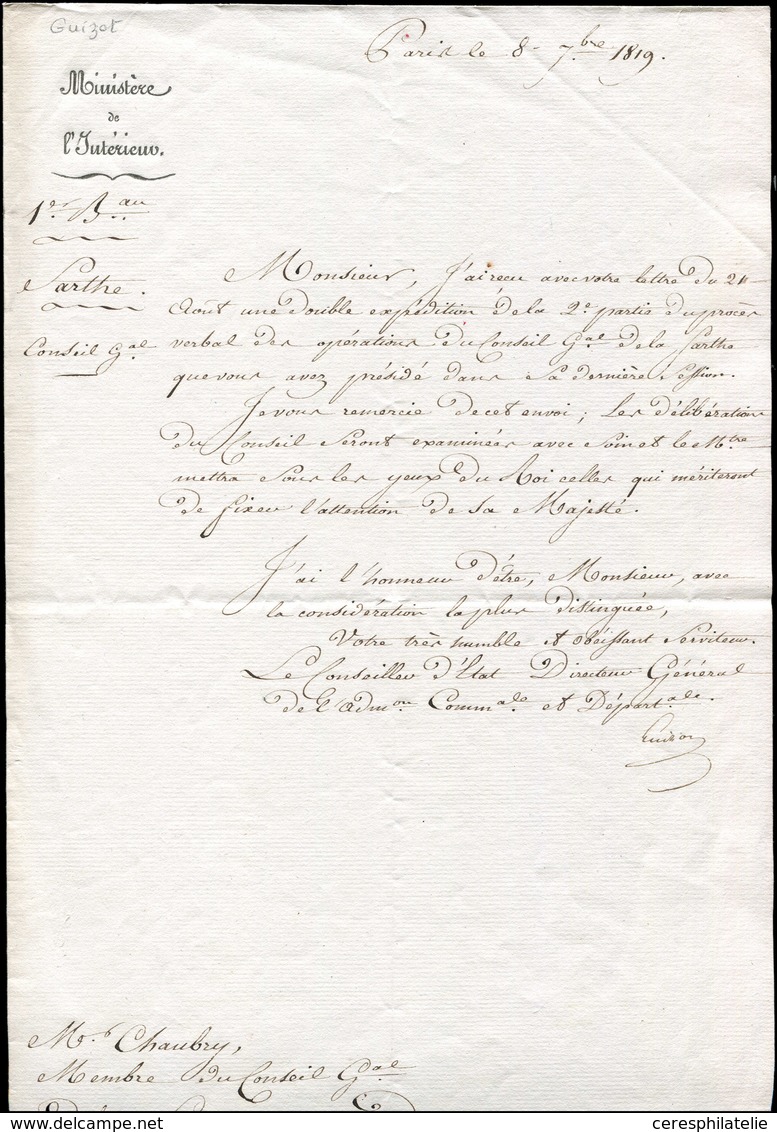 Guizot
Paris le 8 - 7.bre 1819.
Ministère
de
l'Intérieur.
1.er B.au
Sarthe.
Conseil G.al
Monsieur, J'ai reçu avec votre lettre du 21
Août une double expédition de la 2.e partie du procès
verbal des opérations du Conseil G.al de la Sarthe
que vous avez présidé dans sa dernière Session.
Je vous remercie de cet envoi ; Les délibérations
du Conseil seront examinées avec soin et le M.tre
mettra sous les yeux du Roi celles qui mériteront
de fixer l'attention de sa Majesté.
J'ai l'honneur d'être, Monsieur, avec
la considération la plus distinguée,
Votre très humble et obéissant Serviteur.
Le Conseiller d'Etat Directeur Général
de l'adm.on Comm.ale et Départ.ale.
Guizot
M.r Chaubry,
Membre du Conseil G.al
ceresphilatelie